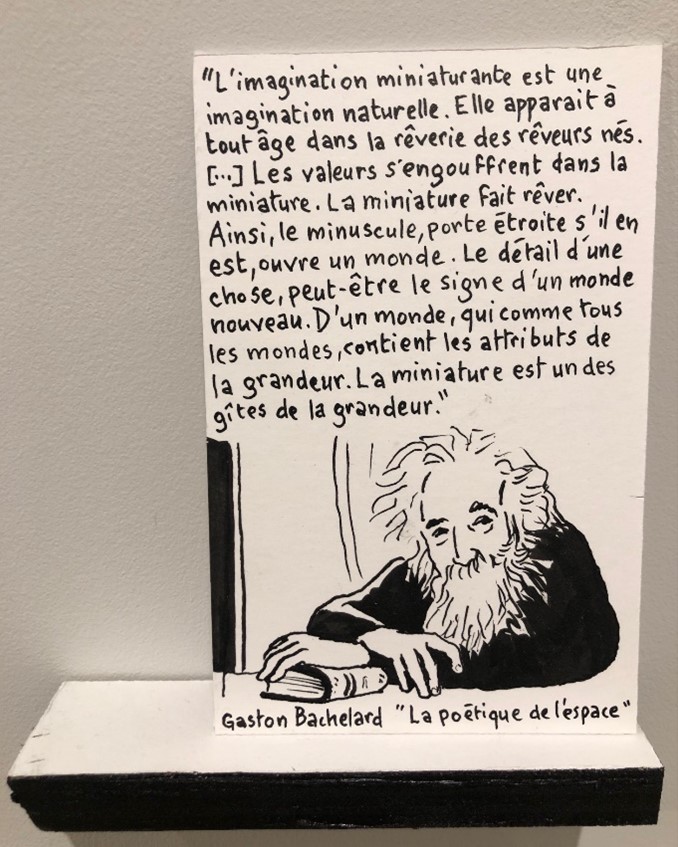 "L'imagination miniaturante est une
imagination naturelle. Elle apparait à
tout âge dans la rêverie des rêveurs nés.
[...] Les valeurs s'engouffrent dans la
miniature. La miniature fait rêver.
Ainsi, le minuscule, porte étroite s'il en
est, ouvre un monde. Le détail d'une
chose, peut-être le signe d'un monde
nouveau. D'un monde, qui comme tous
les mondes, contient les attributs de
la grandeur. La miniature est un des
gîtes de la grandeur."
Gaston Bachelard "La poétique de l'éspace"